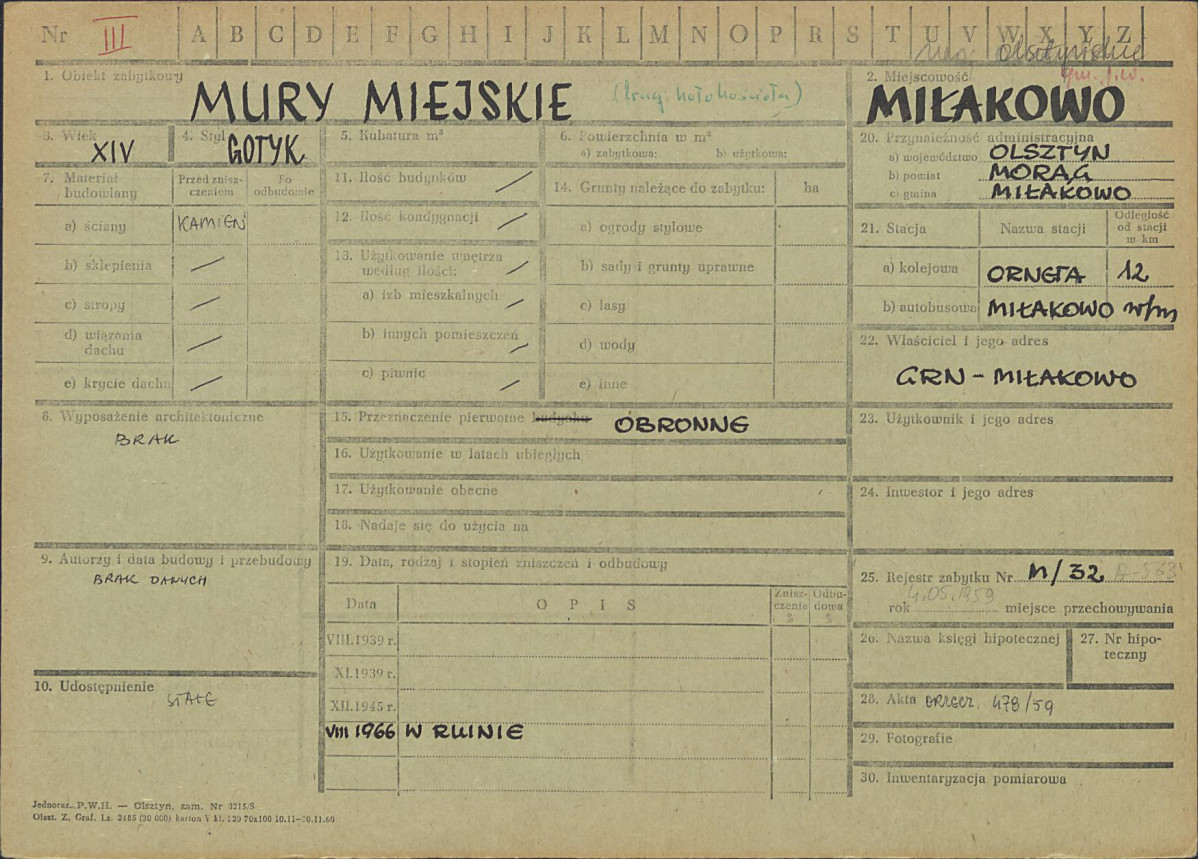 Nr III A B C D E F G H I J K L M N O P R S T U V W X Y Z
woj. olsztyńskie
gm. j.w.
1. Obiekt zabytkowy
MURY MIEJSKIE (frag. koło kościoła)
2. Miejscowość
MIŁAKOWO
3. Wiek
XIV
4. Styl
GOTYK
5. Kubatura m³
6. Powierzchnia w m²
a) zabytkowa: b) użytkowa:
7. Materiał budowlany
Przed zniszczeniem
Po odbudowie
a) ściany KAMIEŃ
b) sklepienia
c) stropy
d) wiązania dachu
e) krycie dachu
8. Wyposażenie architektoniczne
BRAK
9. Autorzy i data budowy i przebudowy
BRAK DANYCH
10. Udostępnienie
STAŁE
11. Ilość budynków
12. Ilość kondygnacji
13. Użytkowanie wnętrza według ilości:
a) izb mieszkalnych
b) innych pomieszczeń
c) piwnic
14. Grunty należące do zabytku: ha
a) ogrody stylowe
b) sady i grunty uprawne
c) lasy
d) wody
e) inne
15. Przeznaczenie pierwotne budynku OBRONNE
16. Użytkowanie w latach ubiegłych
17. Użytkowanie obecne
18. Nadaje się do użycia na
19. Data, rodzaj i stopień zniszczeń i odbudowy
Data OPIS Zniszczenie % Odbudowa %
VIII.1939 r.
XI.1939 r.
XII.1945 r.
VIII 1966 W RUINIE
20. Przynależność administracyjna
a) województwo OLSZTYN
b) powiat MORĄG
c) gmina MIŁAKOWO
21. Stacja Nazwa stacji Odległość od stacji w km
a) kolejowa ORNETA 12
b) autobusowa MIŁAKOWO w/m
22. Właściciel i jego adres
GRN – MIŁAKOWO
23. Użytkownik i jego adres
24. Inwestor i jego adres
25. Rejestr zabytku Nr n/32 A-563
rok 4.05.1959 miejsce przechowywania
26. Nazwa księgi hipotecznej
27. Nr hipoteczny
28. Akta orzecz. 478/59
29. Fotografie
30. Inwentaryzacja pomiarowa
Jednoraz. P.W.H. — Olsztyn, zam. Nr 3215/S
Olszt. Z. Graf. Lz. 2485 (20 000) karton V kl. 220 70x100 10.11—20.11.60